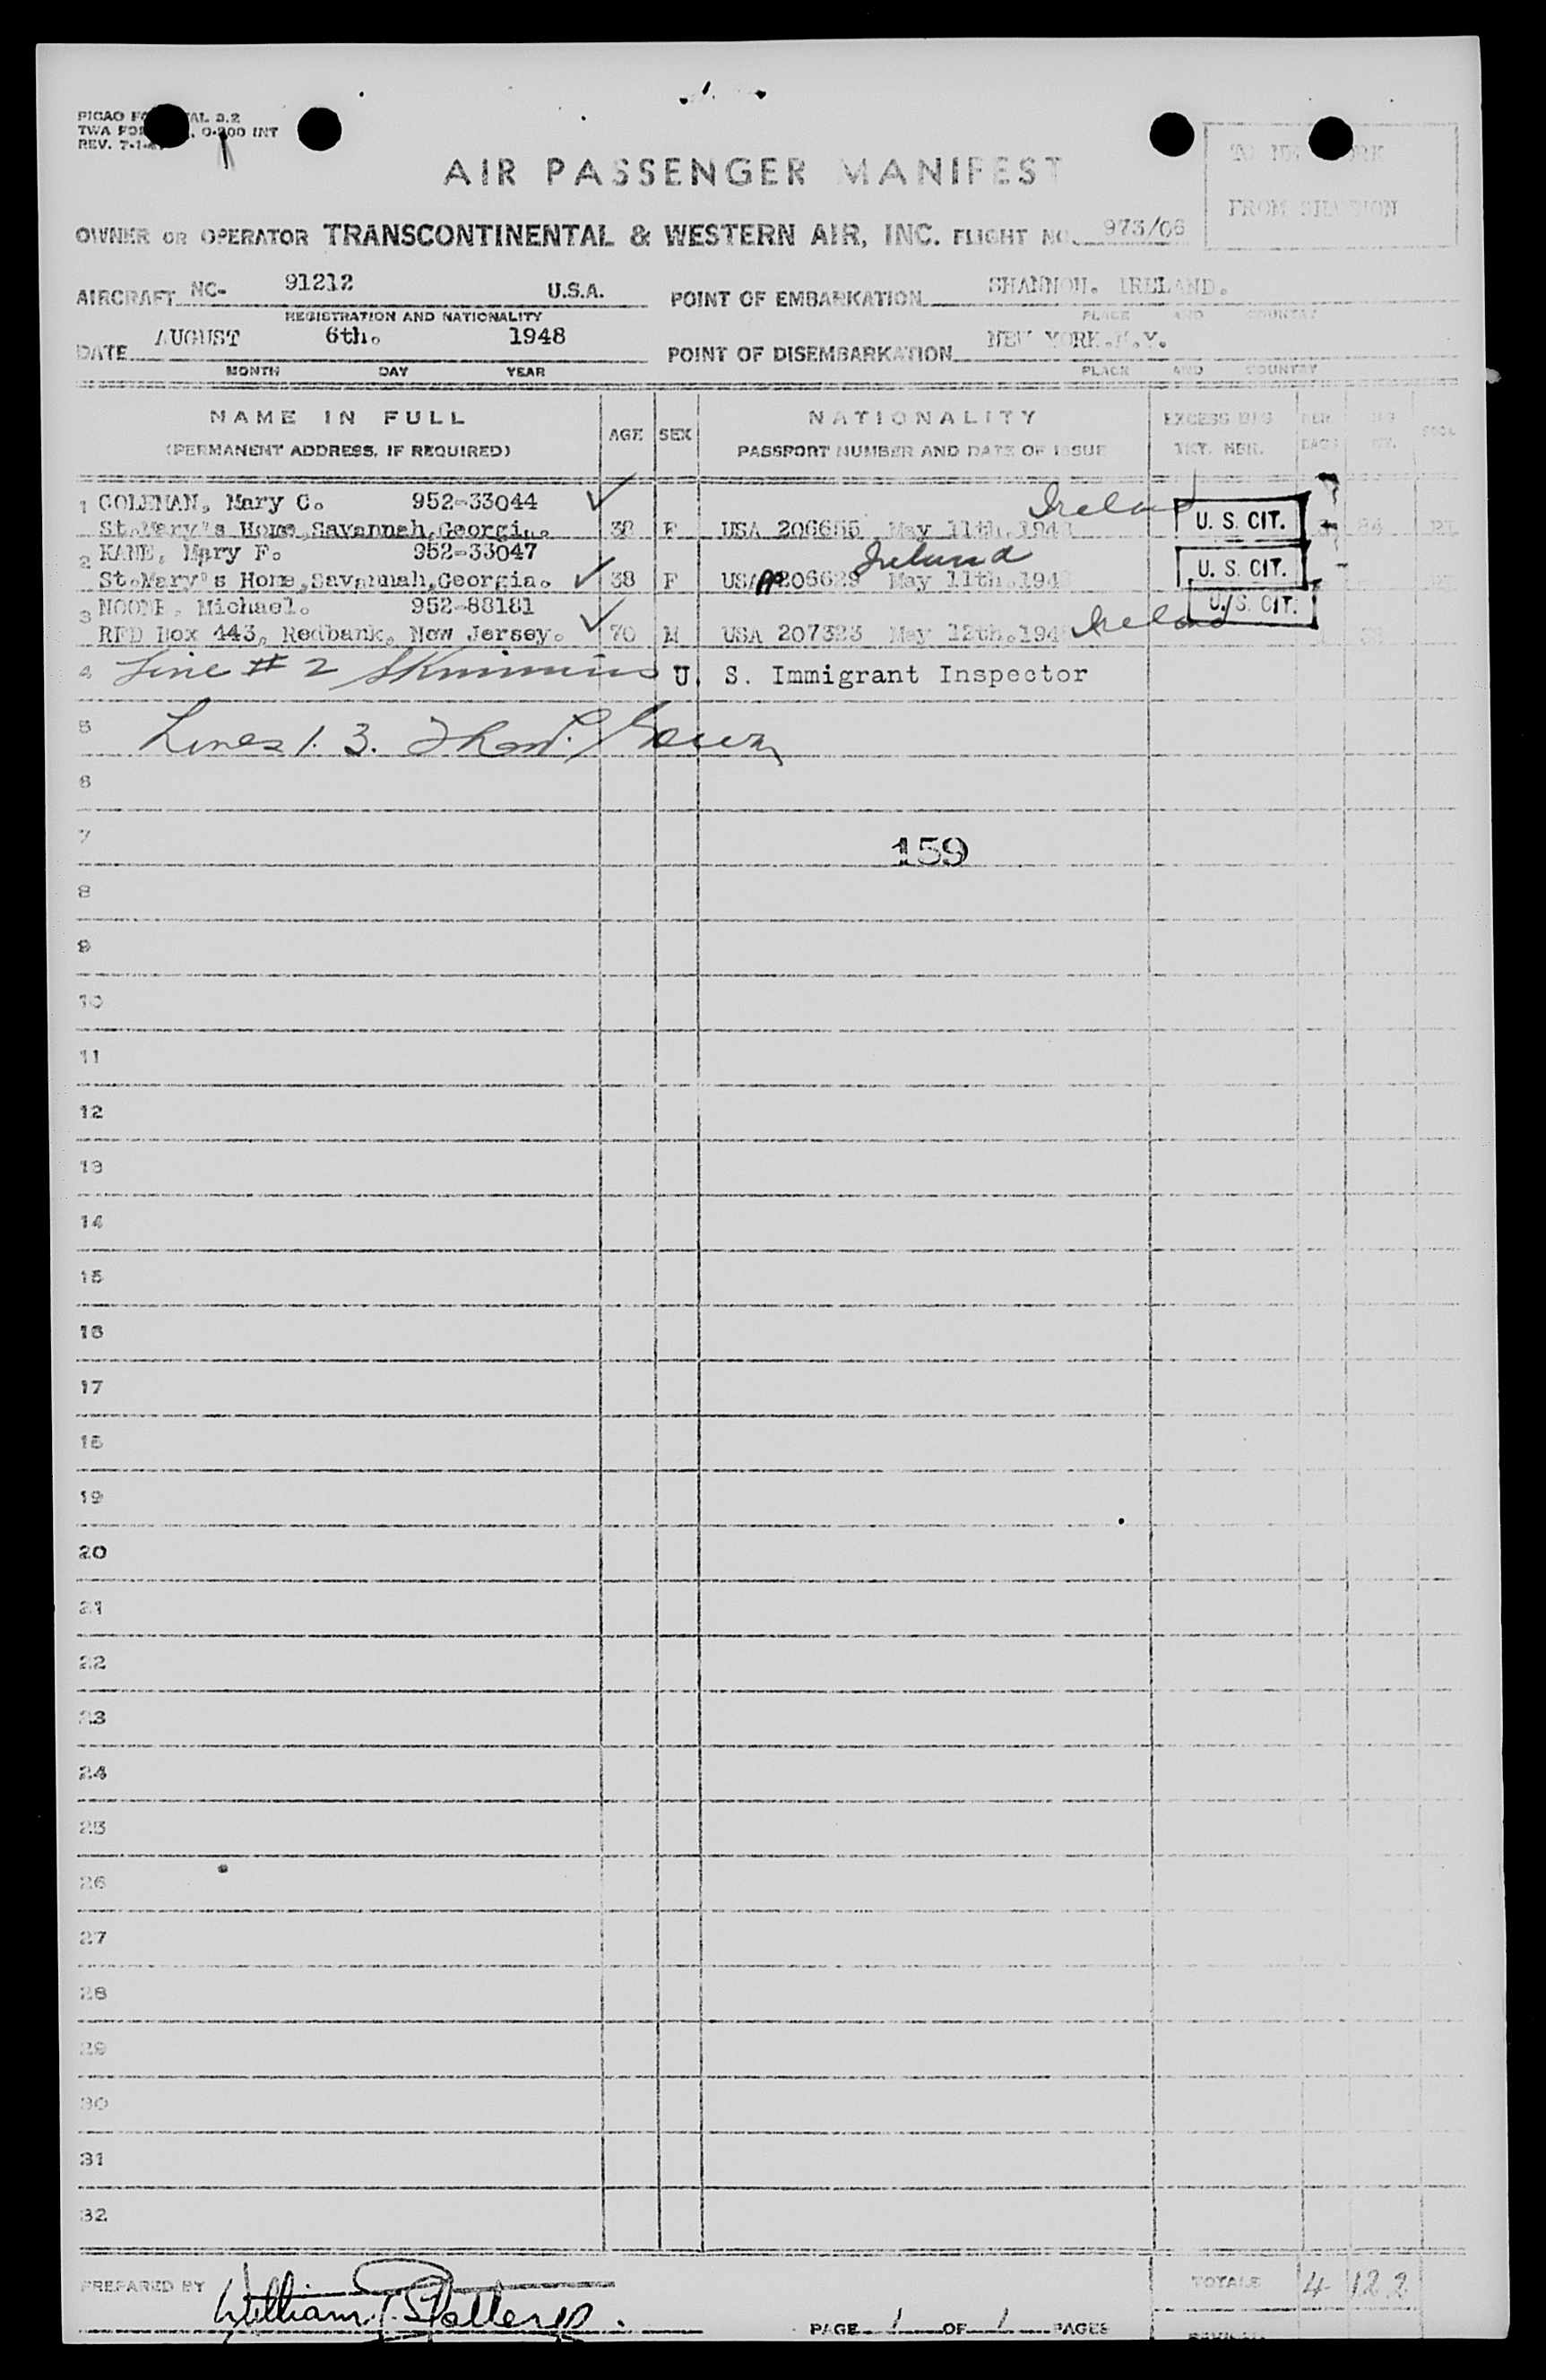 TWA
REV.
AIR PASSENGER MANIFEST
FROM
OWNER OR OPERATOR TRANSCONTINENTAL & WESTERN AIR, INC. FLIGHT NO. 973/06
AIRCRAFT NC- 91212 U.S.A. POINT OF EMBARKATION SHANNON. IRELAND.
REGISTRATION AND NATIONALITY PLACE AND COUNTRY
DATE AUGUST 6th. 1948 POINT OF DISEMBARKATION NEW YORK.N.Y.
MONTH DAY YEAR PLACE AND COUNTRY
NAME IN FULL AGE SEX NATIONALITY EXCESS BAG
(PERMANENT ADDRESS, IF REQUIRED) PASSPORT NUMBER AND DATE OF ISSUE TKT. NBR.
1 COLEMAN, Mary C. 952-33044 Ireland
St.Mary's Home,Savannah,Georgia. 38 F USA 206655 May 11th.194 U. S. CIT.
2 KANE, Mary F. 952-33047 Ireland
St.Mary's Home,Savannah,Georgia. 38 F USA 206629 May 11th.194 U. S. CIT.
3 NOONE, Michael. 952-88181 U. S. CIT.
RFD Box 443, Redbank, New Jersey. 70 M USA 207323 May 12th.194 Ireland
4 Line # 2 U. S. Immigrant Inspector
5 Lines 1. 3.
6
7 159
8
9
10
11
12
13
14
15
16
17
18
19
20
21
22
23
24
25
26
27
28
29
30
31
32
PREPARED BY William TOTALS 4 122
PAGE 1 OF 1 PAGES